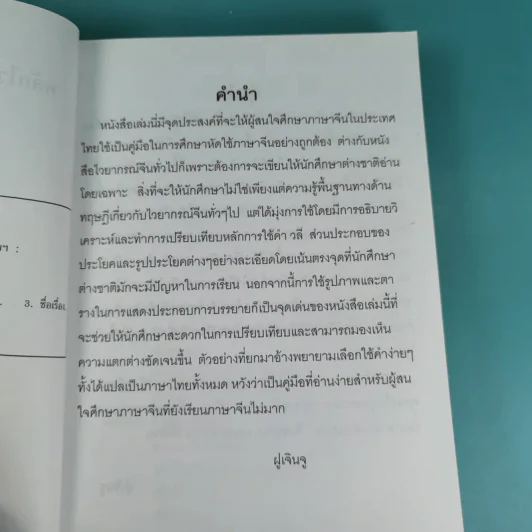 คำนำ
หนังสือเล่มนี้มีจุดประสงค์ที่จะให้ผู้สนใจศึกษาภาษาจีนในประเทศ
ไทยใช้เป็นคู่มือในการศึกษาหัดใช้ภาษาจีนอย่างถูกต้อง ต่างกับหนัง
สือไวยากรณ์จีนทั่วไปก็เพราะต้องการจะเขียนให้นักศึกษาต่างชาติอ่าน
โดยเฉพาะ สิ่งที่จะให้นักศึกษาไม่ใช่เพียงแต่ความรู้พื้นฐานทางด้าน
ทฤษฎีเกี่ยวกับไวยากรณ์จีนทั่วๆไป แต่ได้มุ่งการใช้โดยมีการอธิบายวิ
เคราะห์และทำการเปรียบเทียบหลักการใช้คำ วลี ส่วนประกอบของ
ประโยคและรูปประโยคต่างๆอย่างละเอียดโดยเน้นตรงจุดที่นักศึกษา
ต่างชาติมักจะมีปัญหาในการเรียน นอกจากนี้การใช้รูปภาพและตา
รางในการแสดงประกอบการบรรยายก็เป็นจุดเด่นของหนังสือเล่มนี้ที่
จะช่วยให้นักศึกษาสะดวกในการเปรียบเทียบและสามารถมองเห็น
ความแตกต่างชัดเจนขึ้น ตัวอย่างที่ยกมาอ้างพยายามเลือกใช้คำง่ายๆ
ทั้งได้แปลเป็นภาษาไทยทั้งหมด หวังว่าเป็นคู่มือที่อ่านง่ายสำหรับผู้สน
ใจศึกษาภาษาจีนที่ยังเรียนภาษาจีนไม่มาก
ฝูเจินจู
3. ชื่อเรื่อง